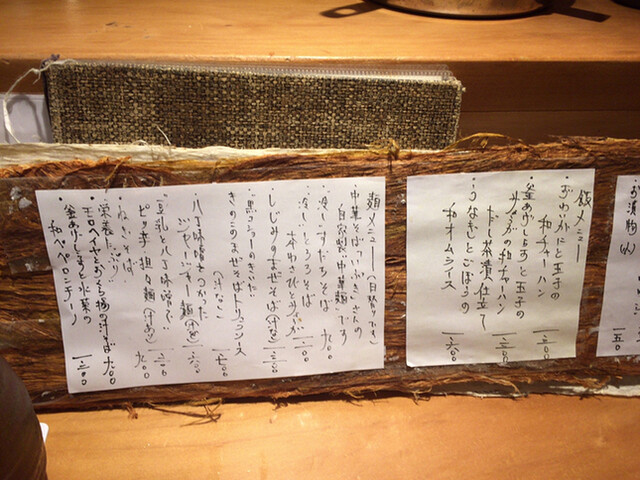 お漬物(小)
一五〇
飯メニュー
・おわいかにと玉子の
和チャーハン 一三〇〇
・釜あげしらすと玉子の
和チャーハン
だし茶漬仕立て 一三〇〇
・うなぎとごぼうの
和オムライス 一六〇〇
麺メニュー(日替りです)
中華そば
自家製 中華麺です
・冷しすだちそば 九〇〇
・冷しとろろそば
本わさびとのりが 一二〇〇
・しじみのまぜそば(汁なし) 一三〇〇
・黒
きのこのまぜそばトリュフソース
(汁なし) 一七〇〇
・八丁味噌をつかった
ジャージャー麺(汁なし) 一二〇〇
・豆乳と八丁味噌で
ピリ辛 担々麺(汁あり) 一二〇〇
・ねぎそば 九〇〇
・栄養たっぷり
モロヘイヤとおくらと梅の汁そば 九〇〇
・釜あげしらすと水菜の
和ペペロンチーノ 一三〇〇